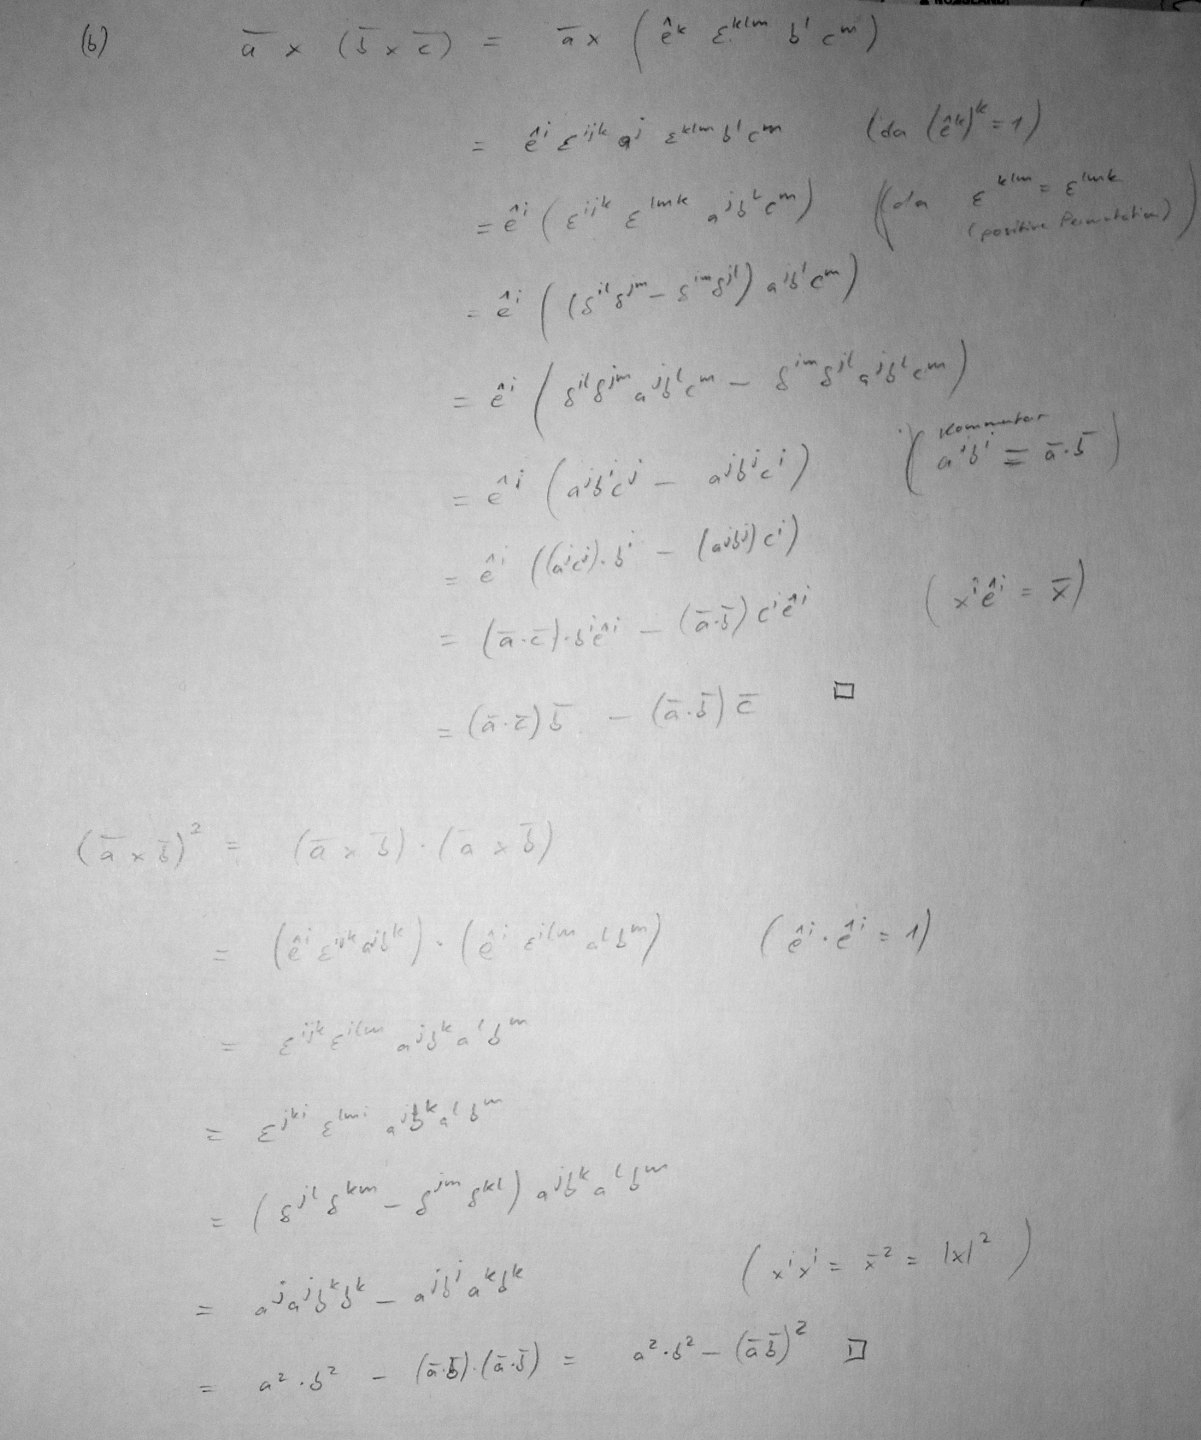 (b) a̅ × (b̅ × c̅) = a̅ × ( ê^k ε^{klm} b^l c^m )
= ê^i ε^{ijk} a^j ε^{klm} b^l c^m (da (ê^k)^k = 1)
= ê^i ( ε^{ijk} ε^{lmk} a^j b^l c^m ) (da ε^{klm} = ε^{lmk}
(positive Permutation))
= ê^i ( (δ^{il} δ^{jm} - δ^{im} δ^{jl}) a^j b^l c^m )
= ê^i ( δ^{il} δ^{jm} a^j b^l c^m - δ^{im} δ^{jl} a^j b^l c^m )
Kommentar
= ê^i ( a^j b^i c^j - a^j b^j c^i ) ( a^i b^i = a̅ · b̅ )
= ê^i ( (a^j c^j) · b^i - (a^j b^j) c^i )
= (a̅ · c̅) · b^i ê^i - (a̅ · b̅) c^i ê^i ( x^i ê^i = x̅ )
= (a̅ · c̅) b̅ - (a̅ · b̅) c̅ □
(a̅ × b̅)^2 = (a̅ × b̅) · (a̅ × b̅)
= ( ê^i ε^{ijk} a^j b^k ) · ( ê^i ε^{ilm} a^l b^m ) ( ê^i · ê^i = 1 )
= ε^{ijk} ε^{ilm} a^j b^k a^l b^m
= ε^{jki} ε^{lmi} a^j b^k a^l b^m
= ( δ^{jl} δ^{km} - δ^{jm} δ^{kl} ) a^j b^k a^l b^m
= a^j a^j b^k b^k - a^j b^j a^k b^k ( x^i x^i = x̅^2 = |x|^2 )
= a^2 · b^2 - (a̅·b̅)·(a̅·b̅) = a^2 · b^2 - (a̅ b̅)^2 □